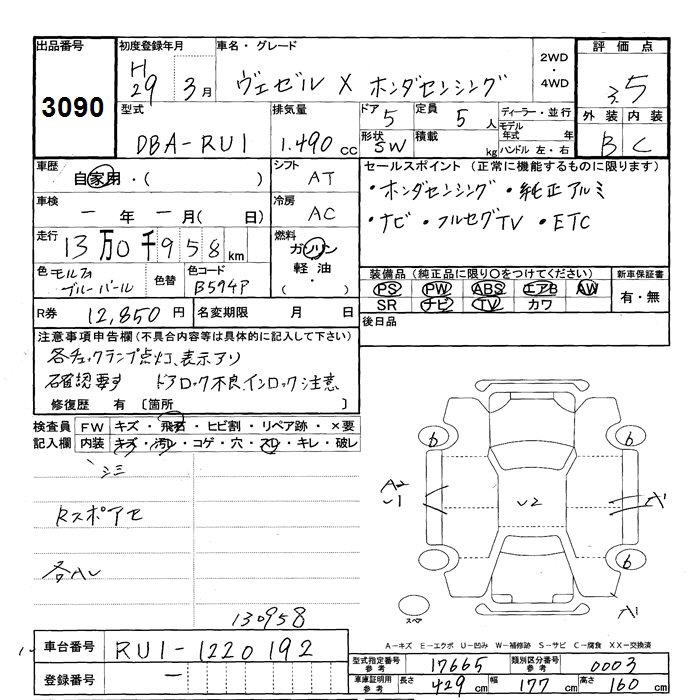 出品番号 初度登録年月 車名・グレード 2WD・4WD 評価点
3090 H29 3月 ヴェゼル X ホンダセンシング 3.5
型式 排気量 ドア 定員 ディーラー・並行 外装 内装
DBA-RU1 1.490 cc 5 5 人 モデル年式 年 B C
形状 SW 積載 kg ハンドル 左・右
車歴 自家用・( ) シフト AT セールスポイント (正常に機能するものに限ります)
・ホンダセンシング ・純正アルミ
車検 一 年 一 月( 日) 冷房 AC ・ナビ ・フルセグTV ・ETC
走行 13万0千958km 燃料 ガソリン・軽油・( )
色 モルフォブルーパール 色替 色コード B594P
装備品 (純正品に限り○をつけてください) 新車保証書
PS PW ABS エアB AW 有・無
SR ナビ TV カワ
R券 12,850円 名変期限 月 日 後日品
注意事項申告欄 (不具合内容等は具体的に記入して下さい)
各チェックランプ点灯、表示アリ
確認要す ドアロック不良、インロック注意
修復歴 有 〔箇所 〕
検査員記入欄 FW キズ・飛石・ヒビ割・リペア跡・×要
内装 キズ・汚レ・コゲ・穴・スレ・キレ・破レ
シミ
Rスポアセ
各ハレ
130958
6 6
A2 U1 U2 A1
6 6
スペア A1
A-キズ E-エクボ U-凹み W-補修跡 S-サビ C-腐食 XX-交換済
車台番号 RU1-1220192
登録番号 一
型式指定番号参考 17665 類別区分番号参考 0003
車庫証明用参考 長さ 429 cm 幅 177 cm 高さ 160 cm